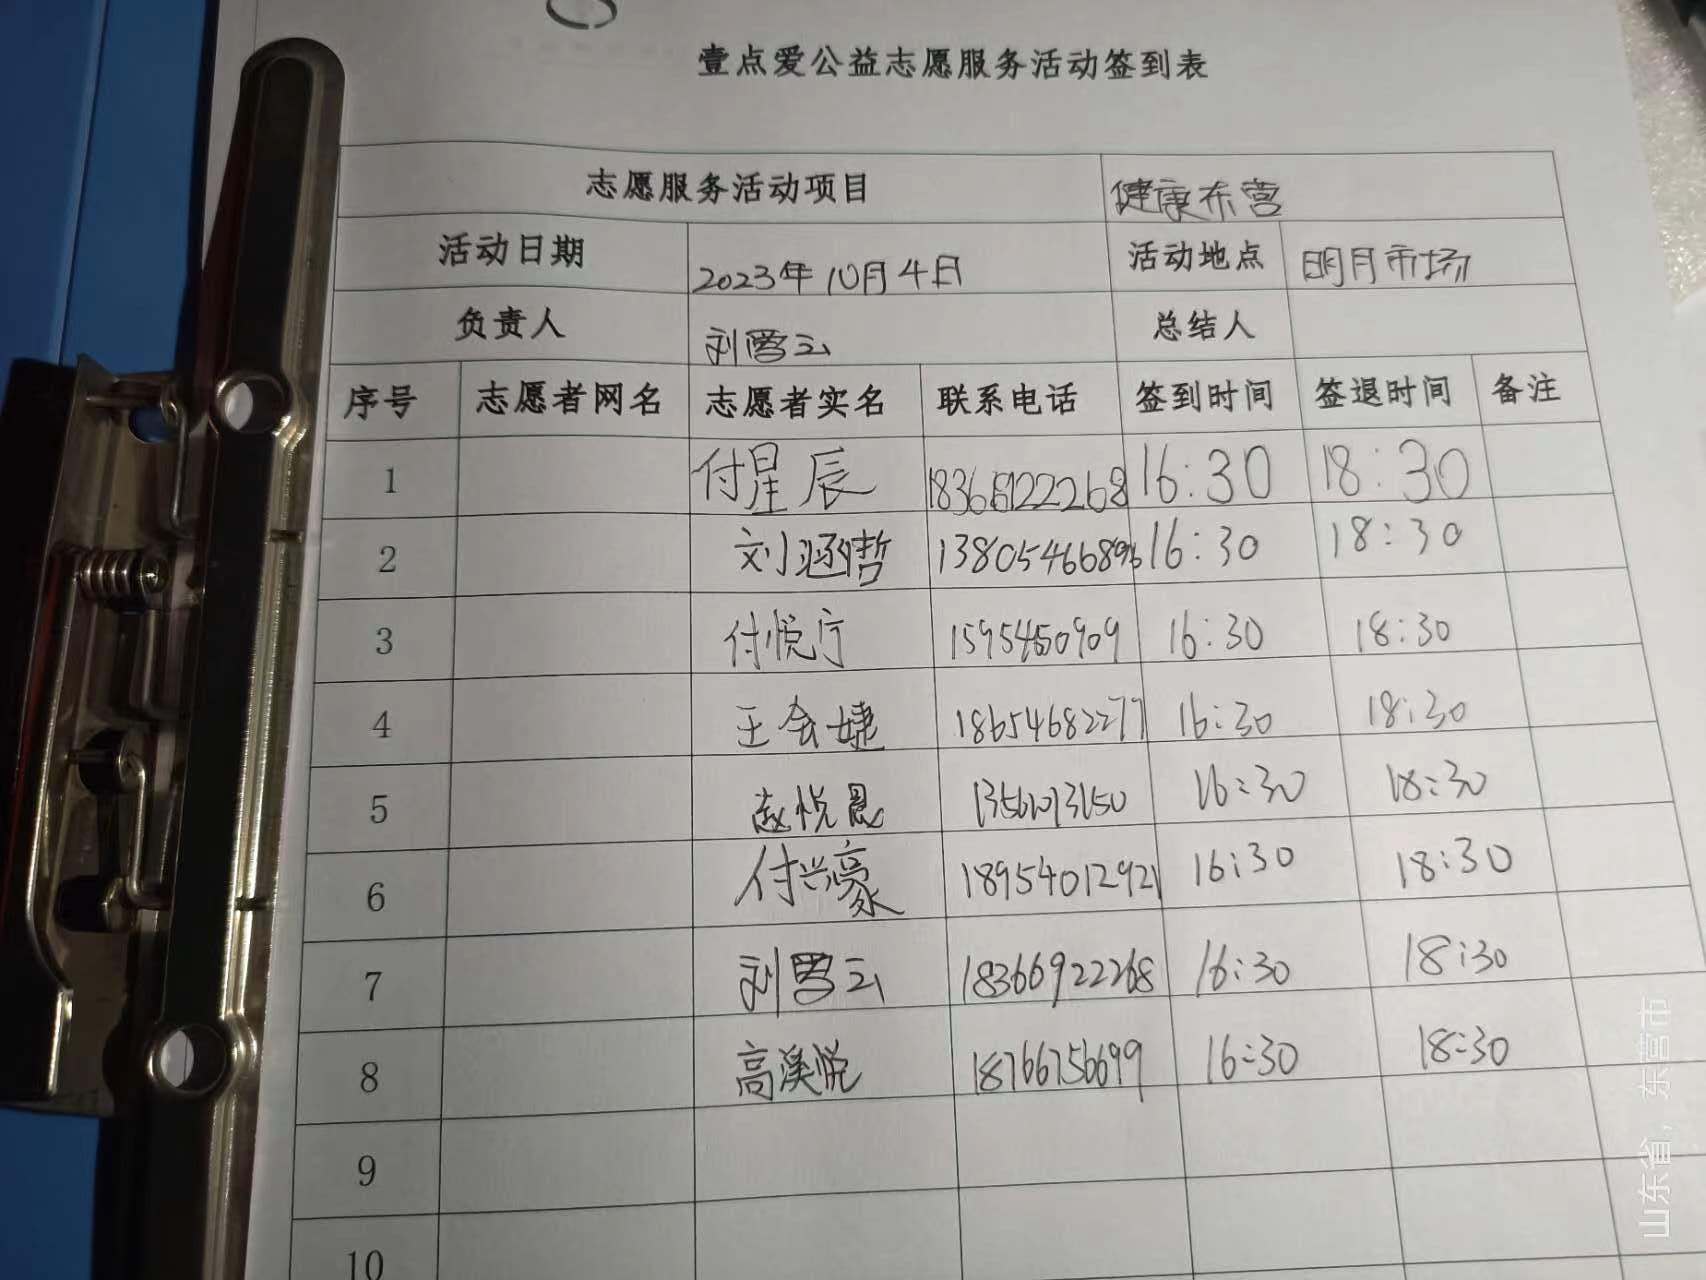 壹点爱公益志愿服务活动签到表
志愿服务活动项目 健康东营
活动日期 2023年10月4日 活动地点 明月市场
负责人 刘雪云 总结人
序号 志愿者网名 志愿者实名 联系电话 签到时间 签退时间 备注
1 付星辰 16:30 18:30
2 刘涵哲 16:30 18:30
3 付悦宁 16:30 18:30
4 王会婕 18654682277 16:30 18:30
5 赵悦恩 16:30 18:30
6 付兴豪 18954012921 16:30 18:30
7 刘雪云 18366922268 16:30 18:30
8 高溪悦 18766756699 16:30 18:30
9
10
山东省，东营市